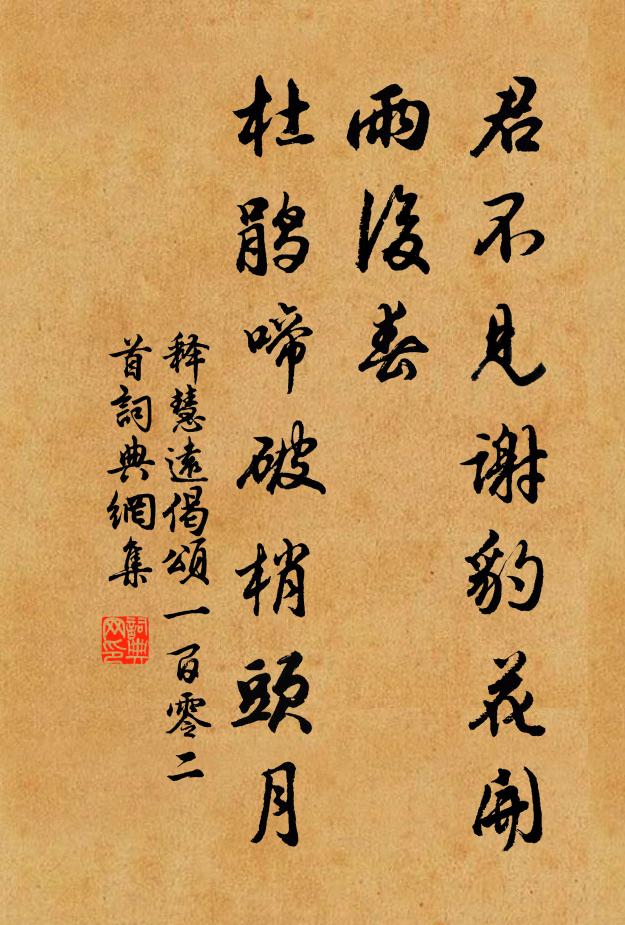 君不見謝豹花開
雨後春
杜鹃啼破梢頭月
释慧遠偈頌一百零二
首詞典網集
詞典网印